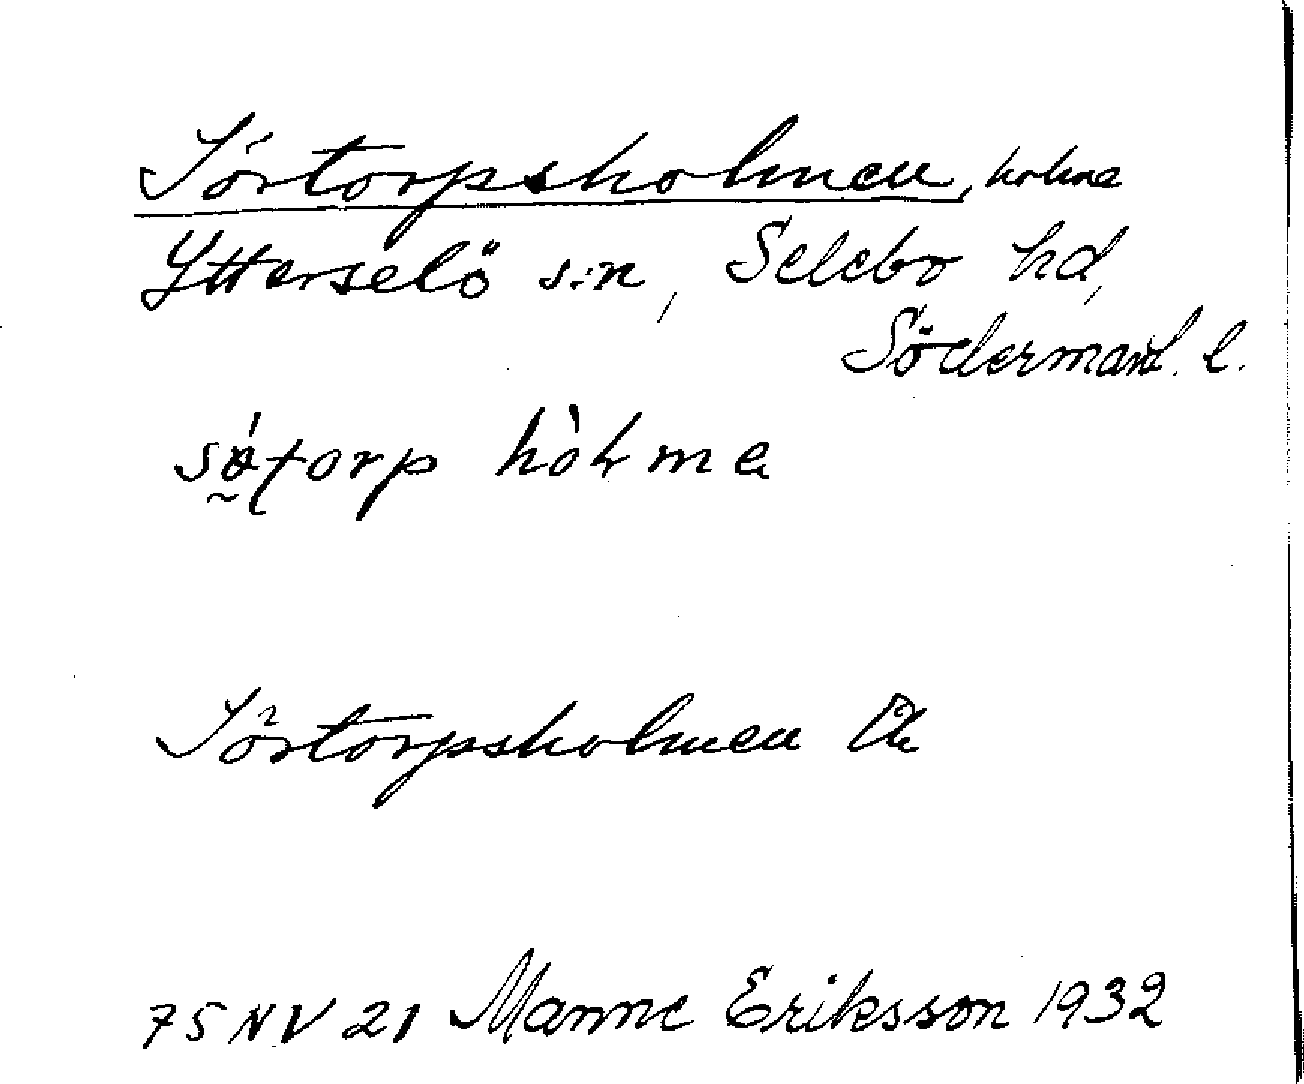 Sörtorpsholmen, holme
Ytterselö s:n, Selebo hd,
Södermanl. l.
Sörtorpsholmen Ek
75 NV 21 Manne Eriksson 1932